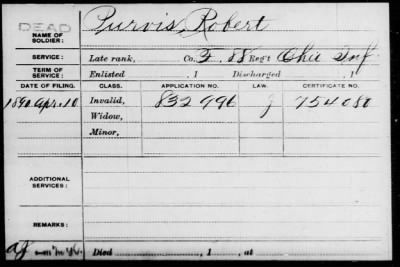 DEAD
NAME OF SOLDIER: Purvis, Robert
SERVICE: Late rank, Co. F. 88 Reg't Ohio Inf.
TERM OF SERVICE: Enlisted , 1 Discharged , 1
DATE OF FILING. CLASS. APPLICATION NO. LAW. CERTIFICATE NO.
1890 Apr. 10 Invalid, 832 996 J 754 080
Widow,
Minor,
ADDITIONAL SERVICES:
REMARKS:
Died , 1 , at